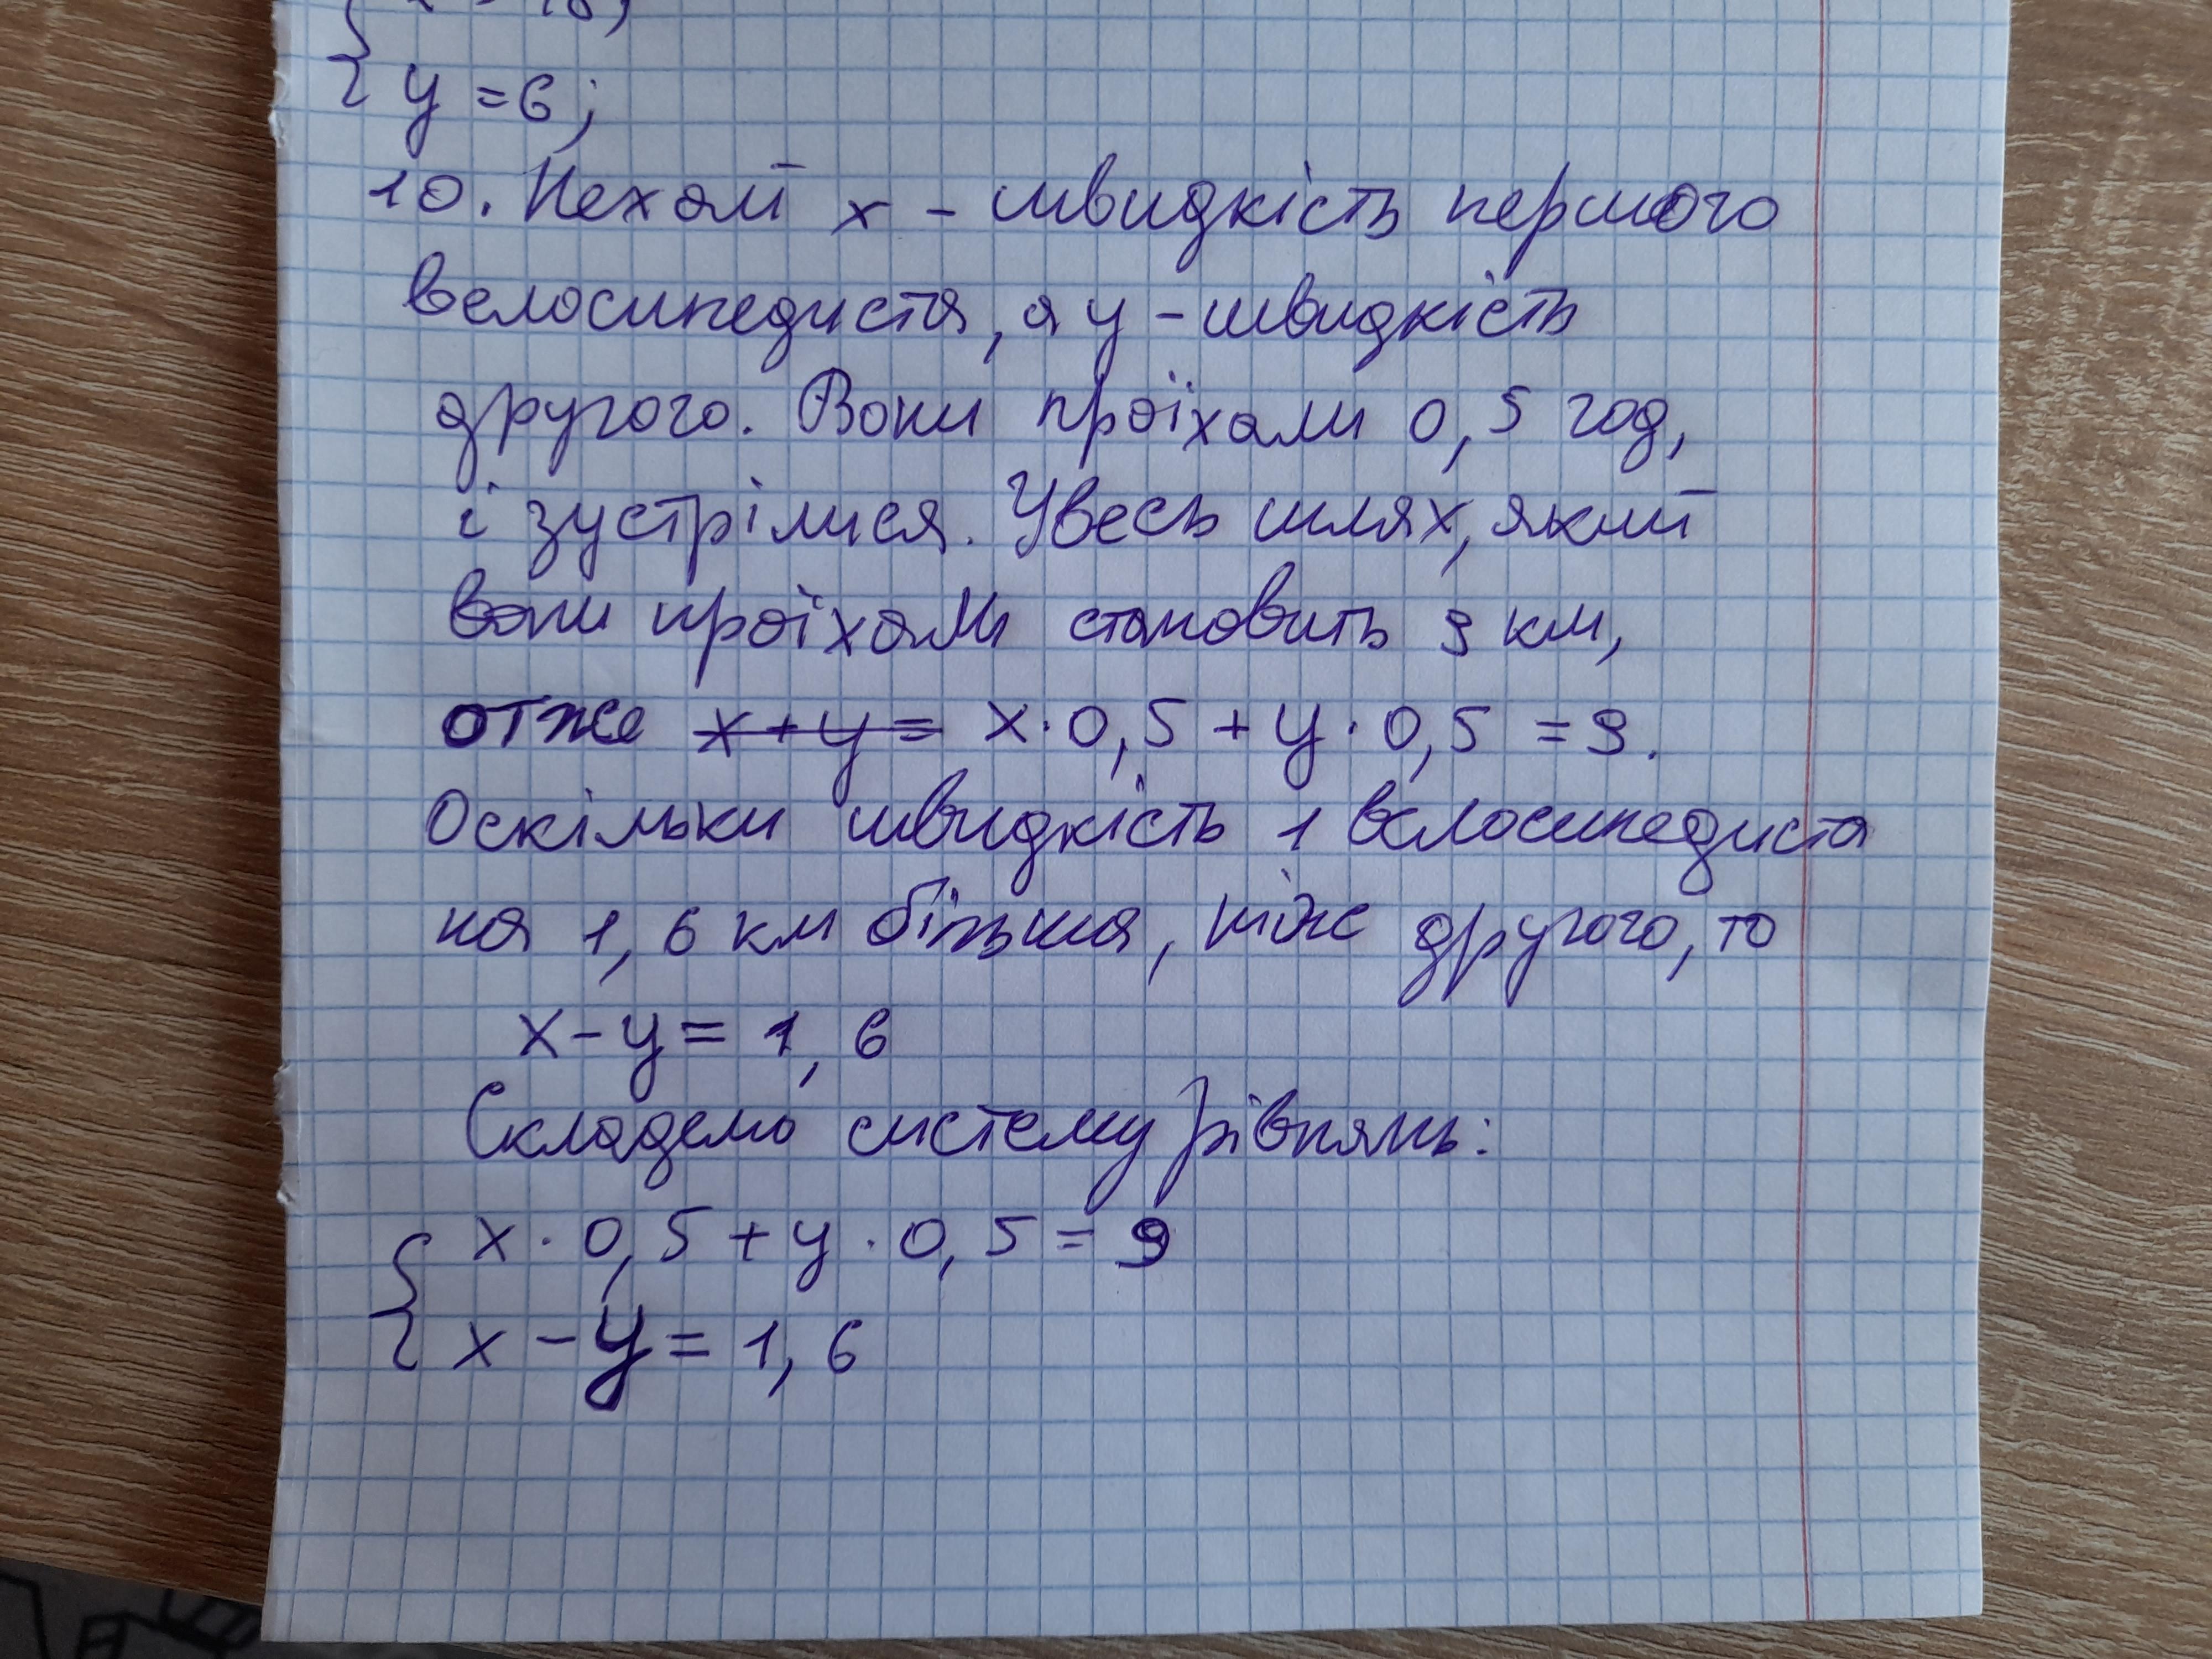 y = 6;
10. Нехай x - швидкість першого
велосипедиста, а y - швидкість
другого. Вони проїхали 0,5 год,
і зустрілися. Увесь шлях, який
вони проїхали становить 9 км,
отже x + y = x · 0,5 + y · 0,5 = 9.
Оскільки швидкість 1 велосипедиста
на 1,6 км більша, ніж другого, то
x - y = 1,6
Складемо систему рівнянь:
x · 0,5 + y · 0,5 = 9
x - y = 1,6